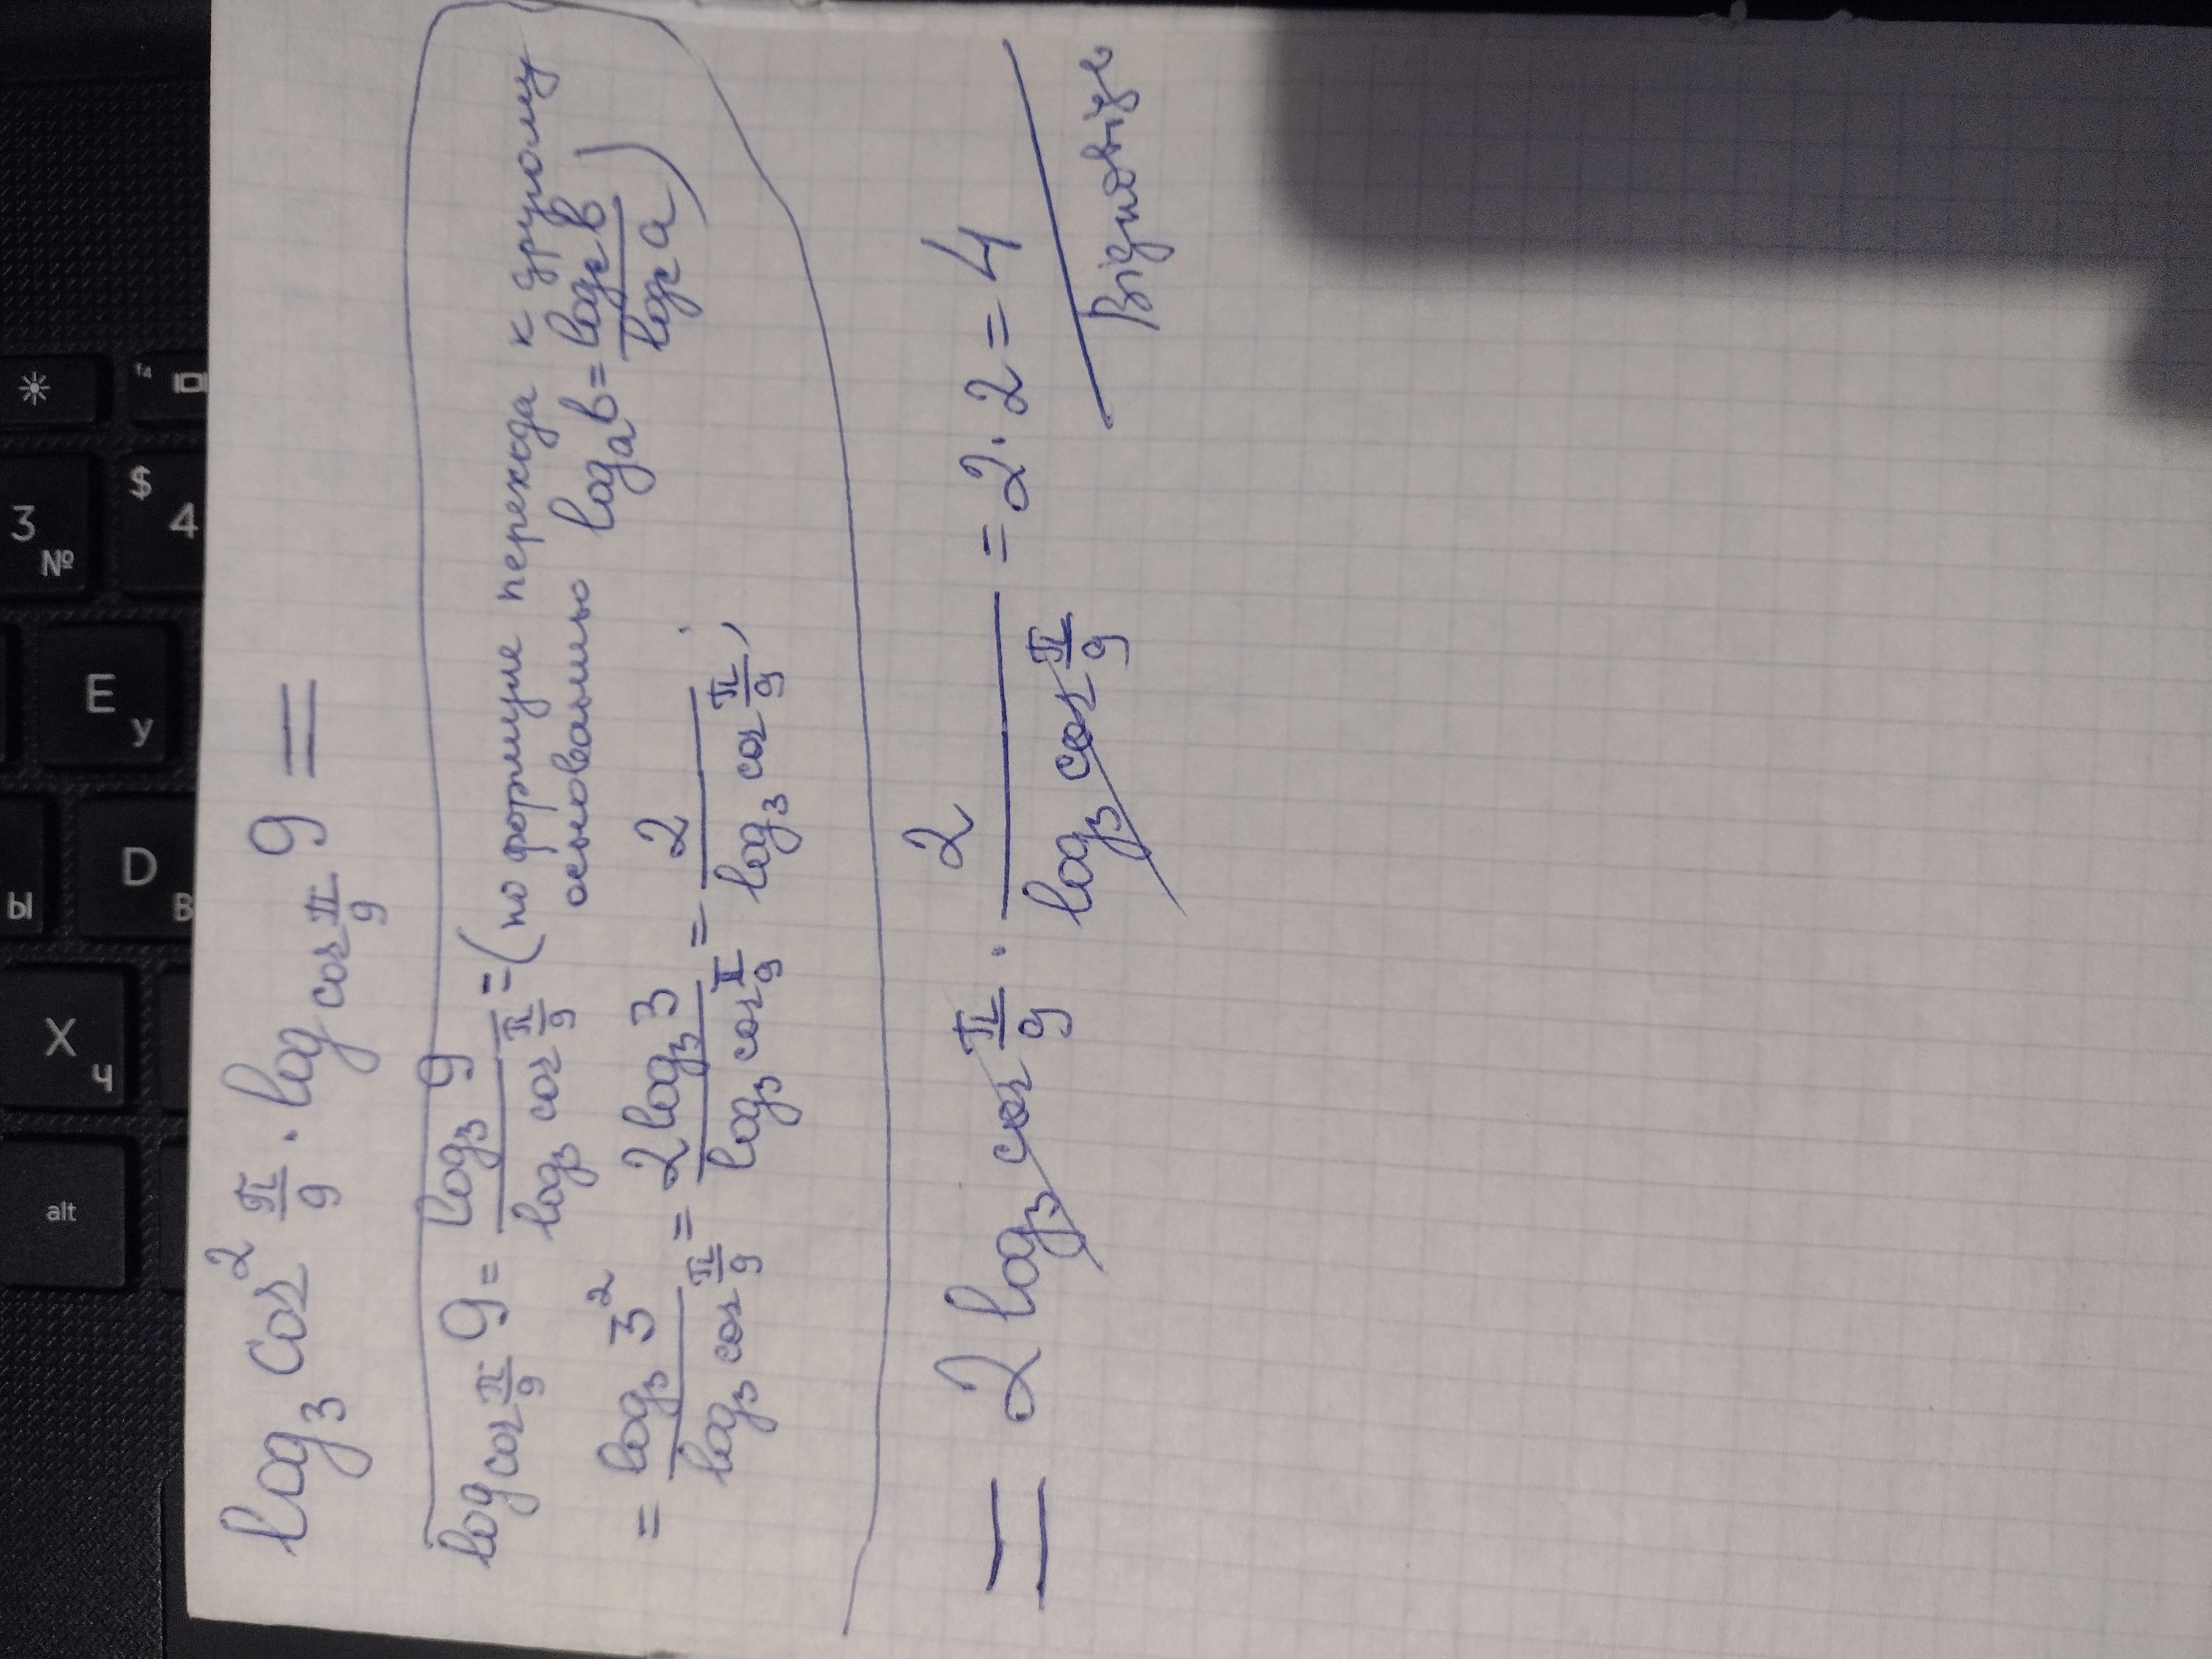 log₃ cos² π/9 · log_{cos π/9} 9 =
log_{cos π/9} 9 = log₃ 9 / log₃ cos π/9 = (по формуле перехода к другому
основанию logₐ b = log_c b / log_c a)
= log₃ 3² / log₃ cos π/9 = 2 log₃ 3 / log₃ cos π/9 = 2 / log₃ cos π/9;
= 2 log₃ cos π/9 · 2 / log₃ cos π/9 = 2 · 2 = 4
Відповідь
*
f4
3
№
$
4
E
У
Ы
D
В
X
Ч
alt